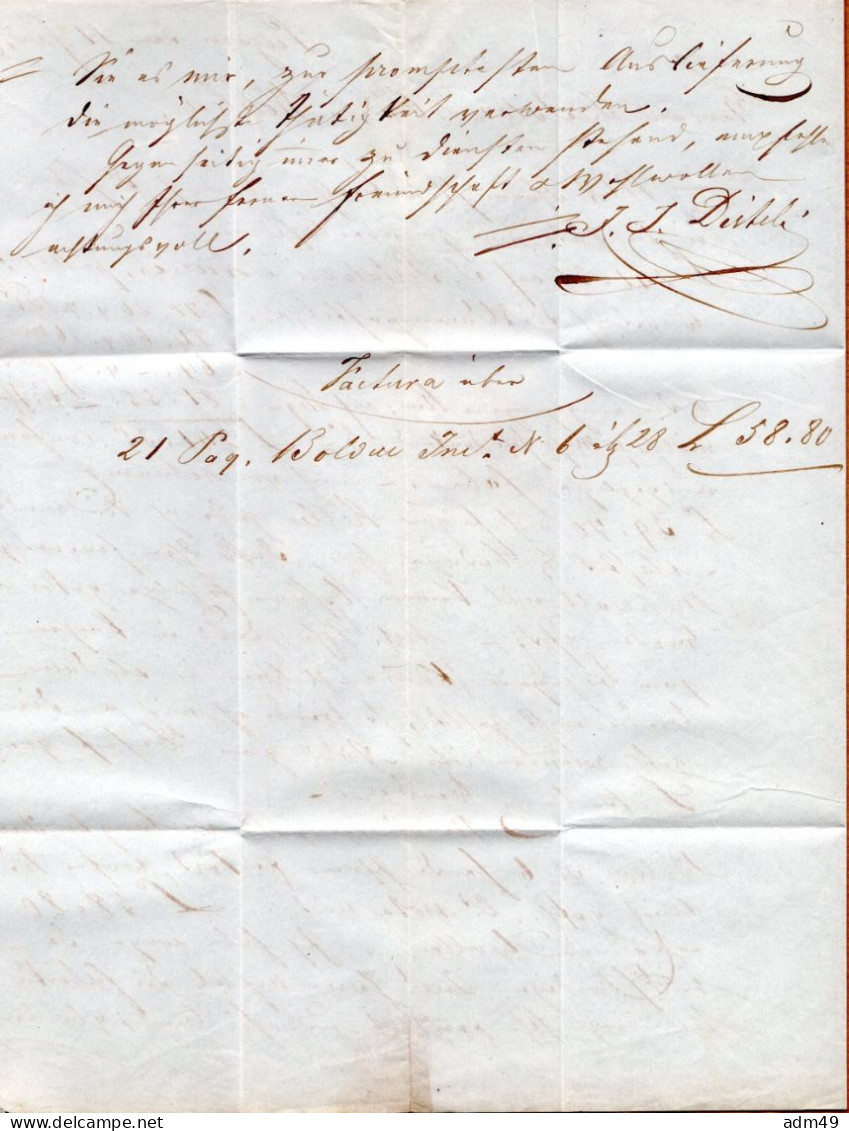 Sie es mir, zur promptesten Auslieferung
die möglichste Thätigkeit verwenden.
Gegenseitig immer zu Diensten stehend, empfehle
ich mich Ihrer fernern Freundschaft & Wohlwollen
achtungsvoll.
J. J. Disteli
Factura über
21 Paq. Bolduc N 6 28 58.80
delcampe.net
adm49